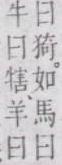 曰猗。如馬曰
牛曰犗、羊曰